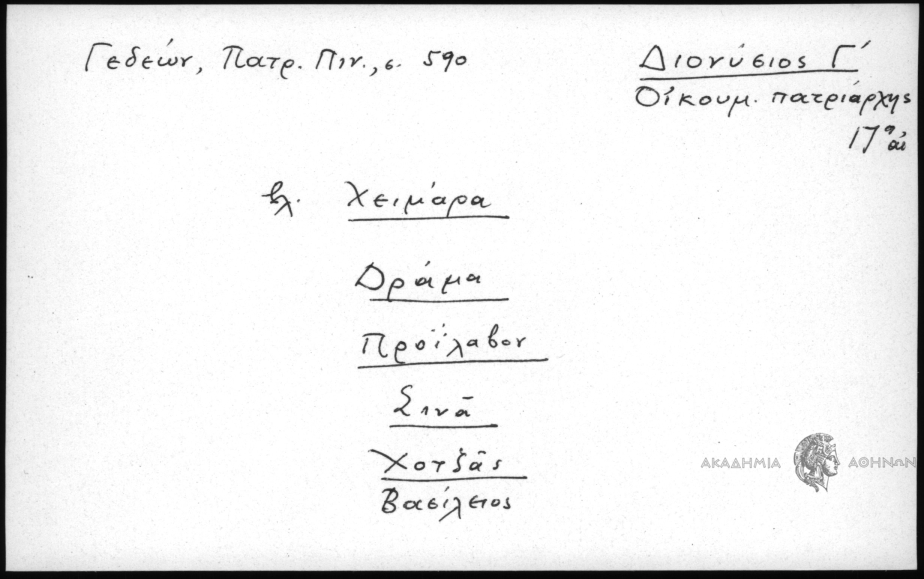 Γεδεών, Πατρ. Πιν., σ. 590
Διονύσιος Γ΄
Οἰκουμ. πατριάρχης
17ος αἰ
βλ. Χειμάρα
Δράμα
Προΐλαβον
Σινᾶ
Χοτζᾶς
Βασίλειος
ΑΚΑΔΗΜΙΑ ΑΘΗΝΩΝ